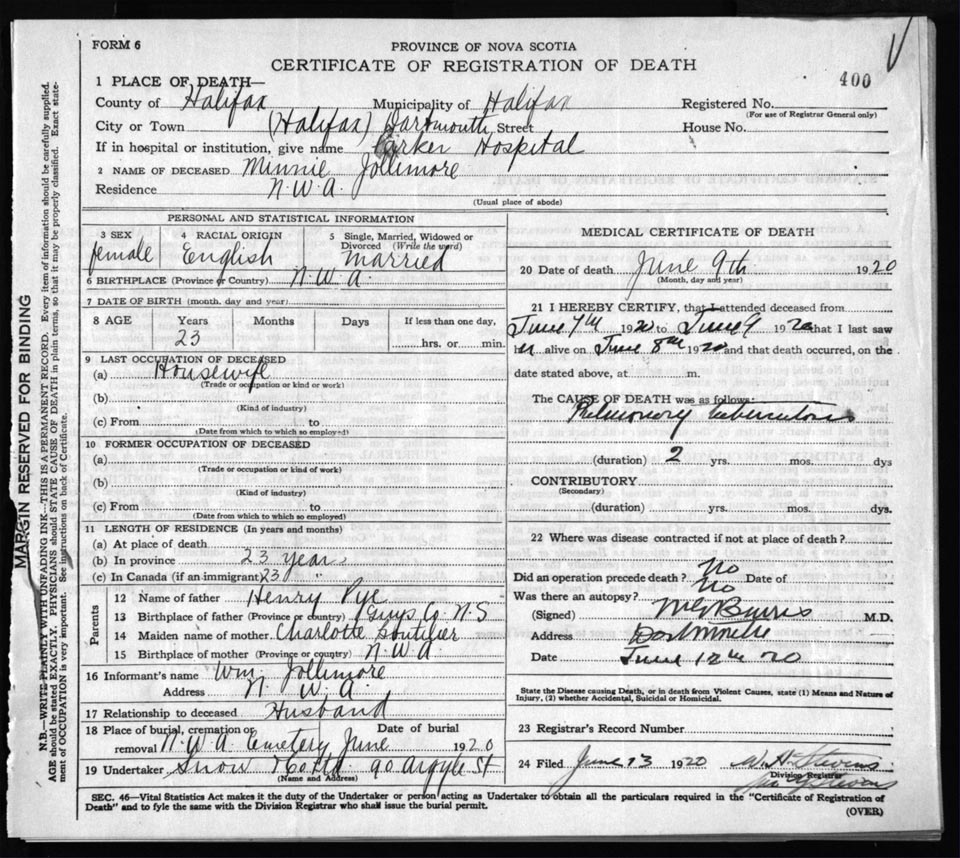 FORM 6
PROVINCE OF NOVA SCOTIA
CERTIFICATE OF REGISTRATION OF DEATH
400
1 PLACE OF DEATH—
County of Halifax Municipality of Halifax Registered No.
(For use of Registrar General only)
City or Town (Halifax) Dartmouth Street House No.
If in hospital or institution, give name Parker Hospital
2 NAME OF DECEASED Minnie Jollimore
Residence N.W.A.
(Usual place of abode)
PERSONAL AND STATISTICAL INFORMATION
3 SEX 4 RACIAL ORIGIN 5 Single, Married, Widowed or Divorced (Write the word)
female English Married
6 BIRTHPLACE (Province or Country) N.W.A.
7 DATE OF BIRTH (month, day and year)
8 AGE Years Months Days If less than one day,
23 hrs. or min.
9 LAST OCCUPATION OF DECEASED
(a) Housewife
(Trade or occupation or kind or work)
(b)
(Kind of industry)
(c) From to
(Date from which to which so employed)
10 FORMER OCCUPATION OF DECEASED
(a)
(Trade or occupation or kind of work)
(b)
(Kind of industry)
(c) From to
(Date from which to which so employed)
11 LENGTH OF RESIDENCE (In years and months)
(a) At place of death
(b) In province 23 years
(c) In Canada (if an immigrant) 23 "
Parents
12 Name of father Henry Pye
13 Birthplace of father (Province or country) Guys Co. N S
14 Maiden name of mother Charlotte Boutilier
15 Birthplace of mother (Province or country) N.W.A.
16 Informant's name Wm. Jollimore
Address N. W. A.
17 Relationship to deceased Husband
18 Place of burial, cremation or removal N.W.A. Cemetery Date of burial June 1920
19 Undertaker Snow & Co Ltd 90 Argyle St
(Name and Address)
MEDICAL CERTIFICATE OF DEATH
20 Date of death June 9th 1920
(Month, day and year)
21 I HEREBY CERTIFY, that I attended deceased from
June 7th 1920 to June 9 1920 that I last saw
her alive on June 8th 1920 and that death occurred, on the
date stated above, at m.
The CAUSE OF DEATH was as follows:
Pulmonary tuberculosis
(duration) 2 yrs. mos. dys
CONTRIBUTORY
(Secondary)
(duration) yrs. mos. dys.
22 Where was disease contracted if not at place of death?
Did an operation precede death? No Date of
Was there an autopsy? No
(Signed) Burris M.D.
Address Dartmouth
Date June 12th 20
State the Disease causing Death, or in death from Violent Causes, state (1) Means and Nature of
Injury, (2) whether Accidental, Suicidal or Homicidal.
23 Registrar's Record Number
24 Filed June 13 1920 W. H. Stevens
Division Registrar
Stevens
SEC. 46—Vital Statistics Act makes it the duty of the Undertaker or person acting as Undertaker to obtain all the particulars required in the "Certificate of Registration of
Death" and to fyle the same with the Division Registrar who shall issue the burial permit.
(OVER)
MARGIN RESERVED FOR BINDING
N.B.—WRITE PLAINLY WITH UNFADING INK—THIS IS A PERMANENT RECORD. Every item of information should be carefully supplied.
AGE should be stated EXACTLY. PHYSICIANS should STATE CAUSE OF DEATH in plain terms, so that it may be properly classified. Exact state-
ment of OCCUPATION is very important. See instructions on back of Certificate.